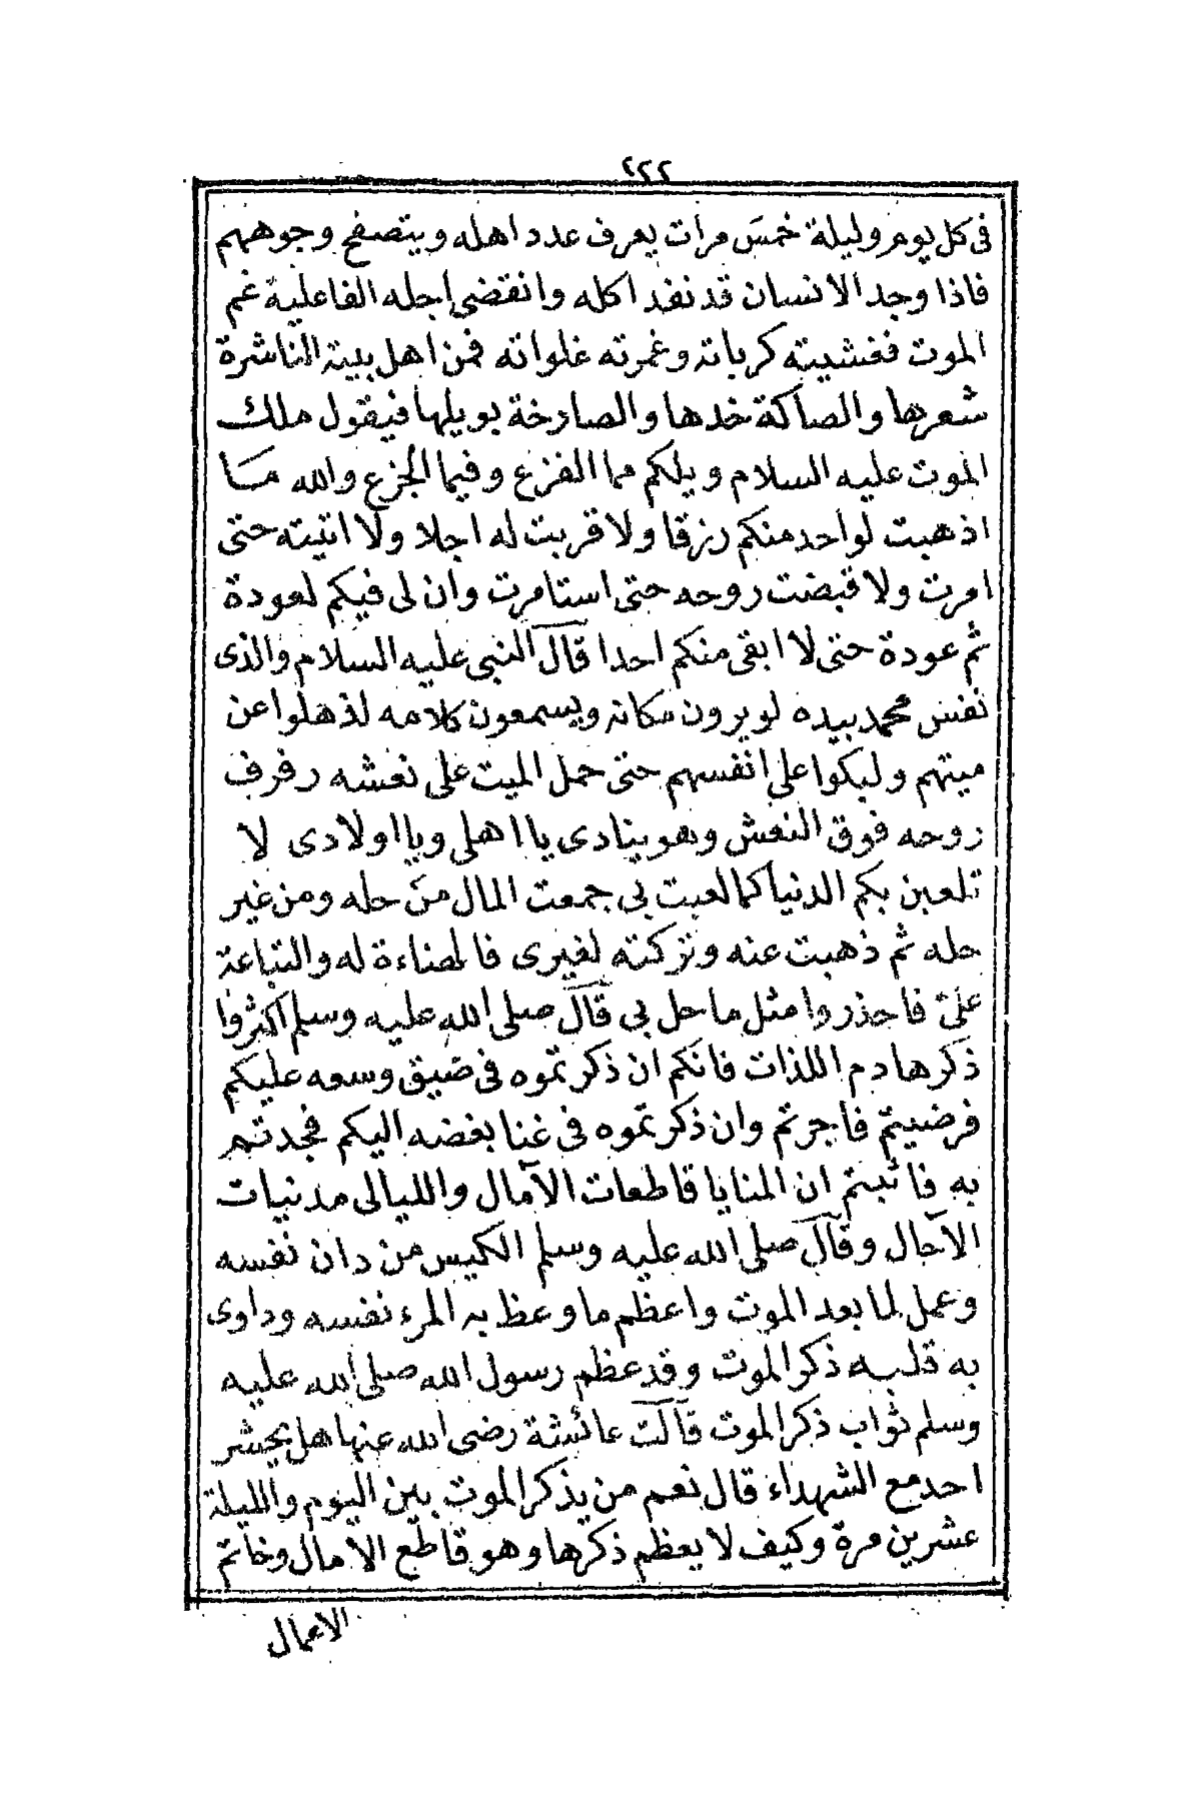 ٢٢٢
فى كل يوم وليلة خمسَ مرات يعرف عدد اهله ويتصفح وجوههم
فاذا وجد الانسان قد نفد اكله وانقضى اجله القا عليه غم
الموت فغشيته كرباته وغمرته غلواته فمن اهل بيته الناشرة
شعرها والصاكة خدها والصارخة بويلها فيقول ملك
الموت عليه السلام ويلكم مما الفزع وفيما الجزع والله مَا
اذهبت لواحد منكم رزقا ولا قربت له اجلا ولا اتيته حتى
امرت ولا قبضت روحه حتى استامرت وان لى فيكم لعودة
ثم عودة حتى لا ابقى منكم احدا قال النبى عليه السلام والذى
نفس محمد بيده لو يرون مكانه ويسمعون كلامه لذهلوا عن
ميتهم ولبكوا على انفسهم حتى حمل الميت على نعشه رفرف
روحه فوق النعش وهو ينادى يا اهلى ويا اولادى لا
تلعبن بكم الدنيا كما لعبت بى جمعت المال من حله ومن غير
حله ثم ذهبت عنه وتركته لغيرى فالهناءة له والتباعة
علىّ فاحذروا مثل ما حل بى قال صلى الله عليه وسلم اكثروا
ذكر هادم اللذات فانكم ان ذكرتموه فى ضيق وسعه عليكم
فرضيتم فاجرتم وان ذكرتموه فى غنا بغضه اليكم فجدتم
به فاثبتم ان المنايا قاطعات الآمال والليالى مدنيات
الآجال وقال صلى الله عليه وسلم الكيس من دان نفسه
وعمل لما بعد الموت واعظم ما وعظ به المرء نفسه وداوى
به قلبه ذكر الموت وقد عظم رسول الله صلى الله عليه
وسلم ثواب ذكر الموت قالت عائشة رضى الله عنها هل يحشر
احد مع الشهداء قال نعم من يذكر الموت بين اليوم والليلة
عشرين مرة وكيف لا يعظم ذكرها وهو قاطع الآمال وخاتم
الاعمال